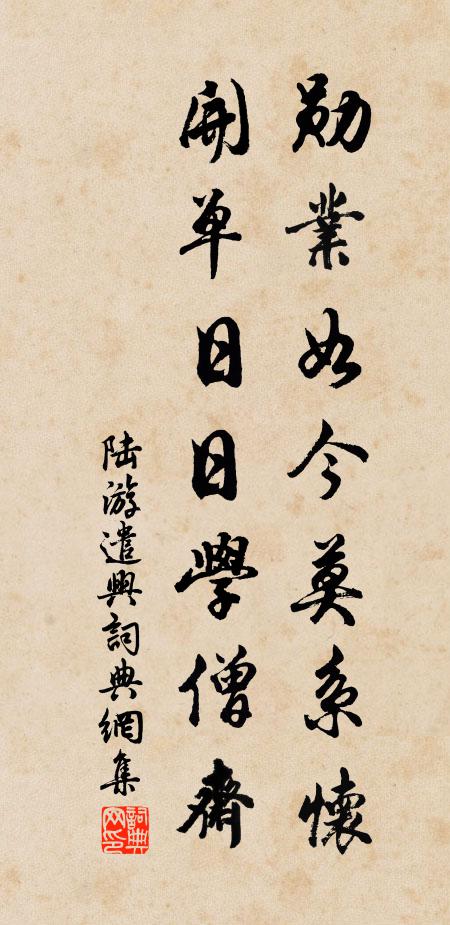 勛業如今莫系懷
開單日日學僧齋
陸游遣興詞典網集
詞典網印